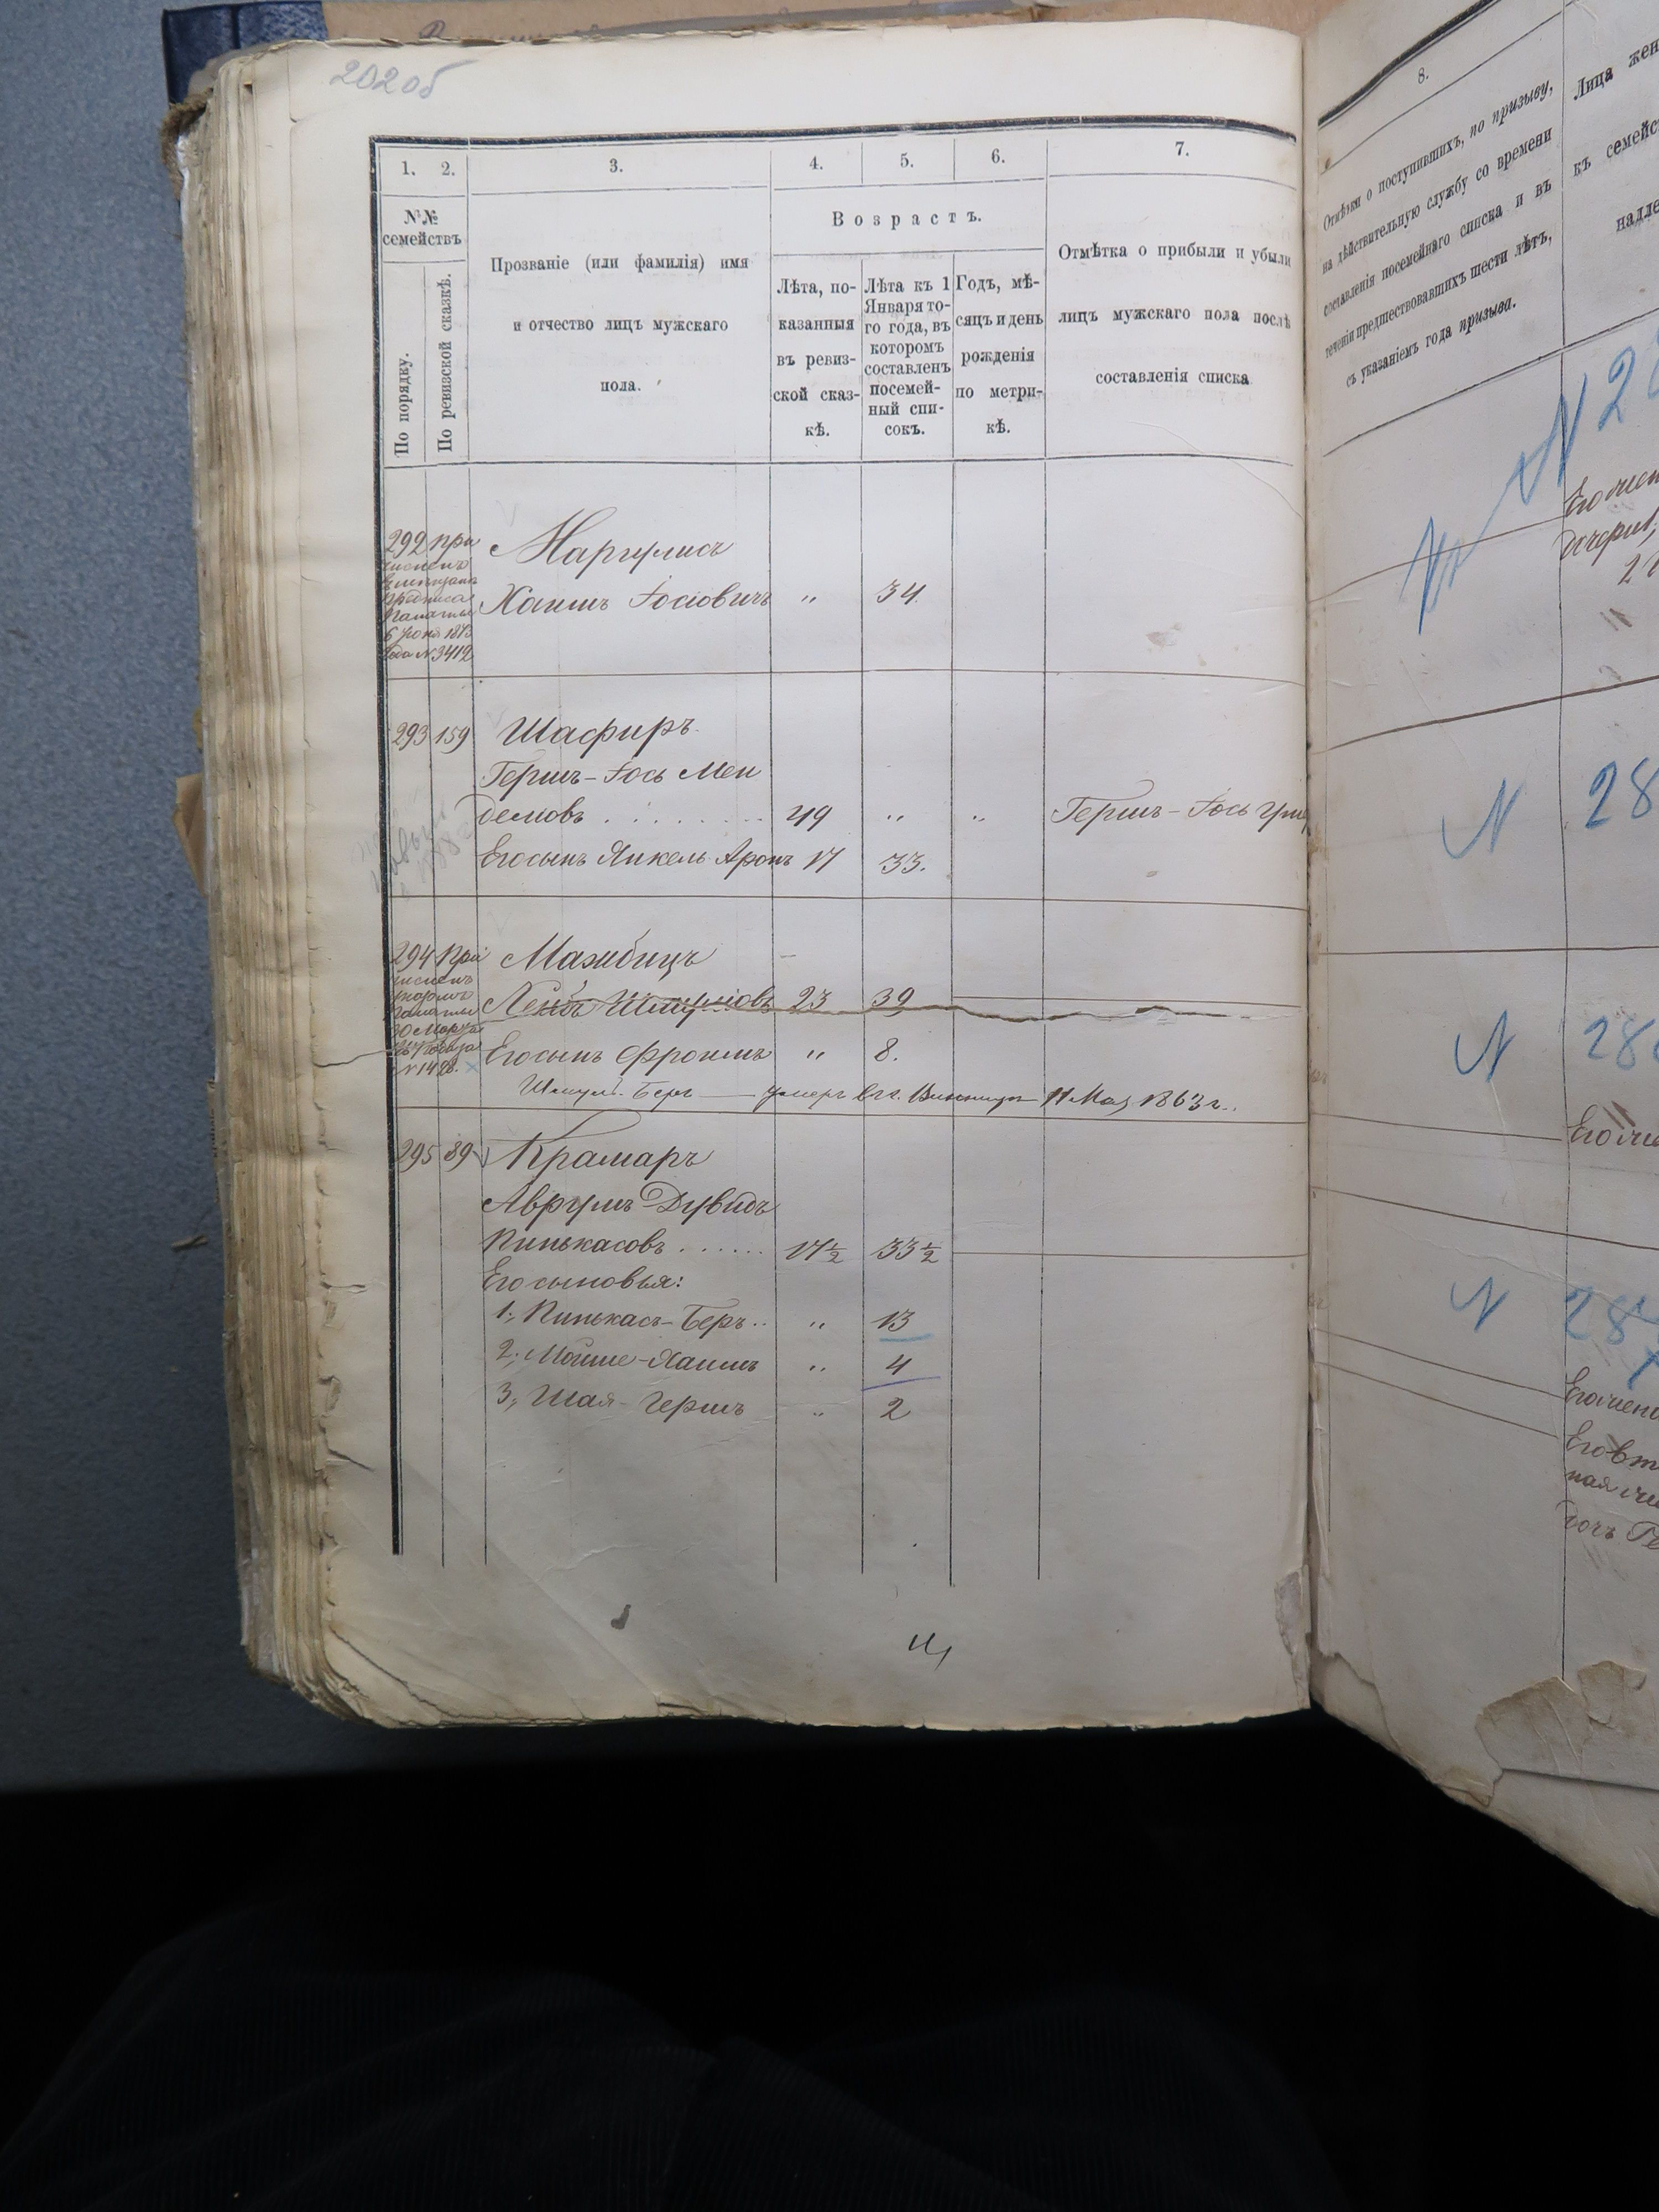 202об
1.
2.
3.
4.
5.
6.
7.
№№
семействъ
По порядку.
По ревизской сказкѣ.
Прозваніе (или фамилія) имя
и отчество лицъ мужскаго
пола.
Возрастъ.
Лѣта, по-
казанныя
въ ревиз-
ской сказ-
кѣ.
Лѣта къ 1
Января то-
го года, въ
которомъ
составленъ
посемей-
ный спи-
сокъ.
Годъ, мѣ-
сяцъ и день
рожденія
по метри-
кѣ.
Отмѣтка о прибыли и убыли
лицъ мужскаго пола послѣ
составленія списка
292 при
Маргулисъ
Хаимъ Іосіовичъ " 34.
6 1873
года № 3412
293 159 Шафиръ
Гершъ-Іось Мен
делювъ 49 " " Гершъ-Іось
Его сынъ Янкель Аронъ 17 33.
294 При Мажбицъ
численъ
Лейбъ Шмулiовъ 23 39
30 Марта
№ 1428.
Его сынъ Фроимъ " 8.
Шмуль Беръ — умеръ въ г. Винницѣ 11 Мая 1863 г.
295 89 Крамаръ
Аврумъ Дувидъ
Пинькасовъ 17½ 33½
Его сыновья:
1, Пинькасъ-Беръ " 13
2, Мойше-Хаимъ " 4
3, Шая-Гершъ " 2
8.
Отмѣтки о поступившихъ, по призыву,
на дѣйствительную службу со времени
составленія посемейнаго списка и въ
теченіи предшествовавшихъ шести лѣтъ,
съ указаніемъ года призыва.
Лица жен
къ семейс
надле
N 2
Его жен
N 28
N 28
Его же
N 28
Его жена
Его вт